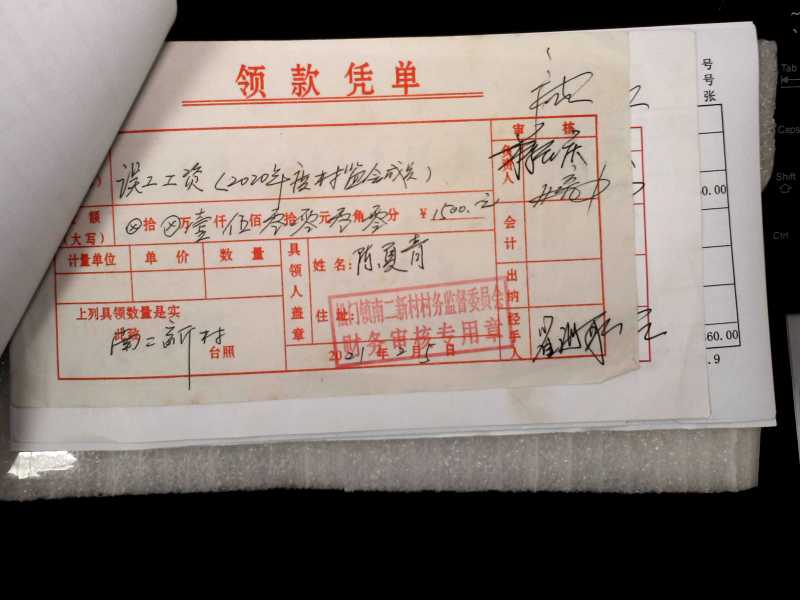 领款凭单
审核
误工工资(2020年度村监会成员)
人
额
(大写)
⊗拾⊗万壹仟伍佰零拾零元零角零分 ¥1500.元
会计
计量单位 单价 数量
具领人盖章
姓名:陈夏青
出纳
上列具领数量是实
此致
南二新村
台照
住址:
松门镇南二新村村务监督委员会
财务审核专用章
2021年2月5日
经手人
号
号
张
0.00
60.00
.9
Tab
Caps
Shift
Ctrl